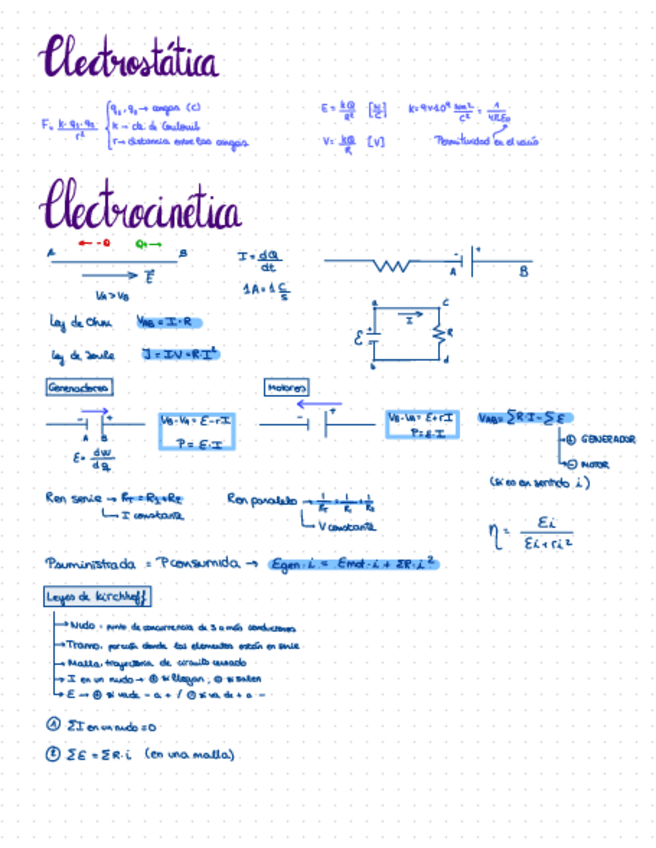 Electrostática
F = k·q₁·q₂ / r²
q₁, q₂ → cargas (C)
k → cte. de Coulomb
r → distancia entre las cargas
E = kQ / R² [N/C]
V = kQ / R [V]
k = 9×10⁹ Nm²/C² = 1 / 4πε₀
Permitividad en el vacío
Electrocinética
A ← -Q Q+ → B
E
VA > VB
I = dQ / dt
1A = 1 C/s
A - + B
a c
ε I R
b d
Ley de Ohm VAB = I·R
Ley de Joule J = I·V = R·I²
Generadores
- +
A B
ε = dW / dq
VB - VA = E - rI
P = E·I
Motores
- +
VB - VA = E + rI
P = E·I
VAB = ΣR·I - ΣE
⊕ GENERADOR
⊖ MOTOR
(si es en sentido i)
R en serie → RT = R1 + R2
I constante
R en paralelo → 1/RT = 1/R1 + 1/R2
V constante
η = Ei / Ei + ri²
Psuministrada = Pconsumida → Egen·i = Emot·i + ΣR·i²
Leyes de Kirchhoff
→ Nudo: punto de concurrencia de 3 o más conductores
→ Tramo: porción donde los elementos están en serie
→ Malla: trayectoria de circuito cerrado
→ I en un nudo → ⊕ si llegan, ⊖ si salen
→ E → ⊕ si va de - a + / ⊖ si va de + a -
① ΣI en un nudo = 0
② ΣE = ΣR·i (en una malla)